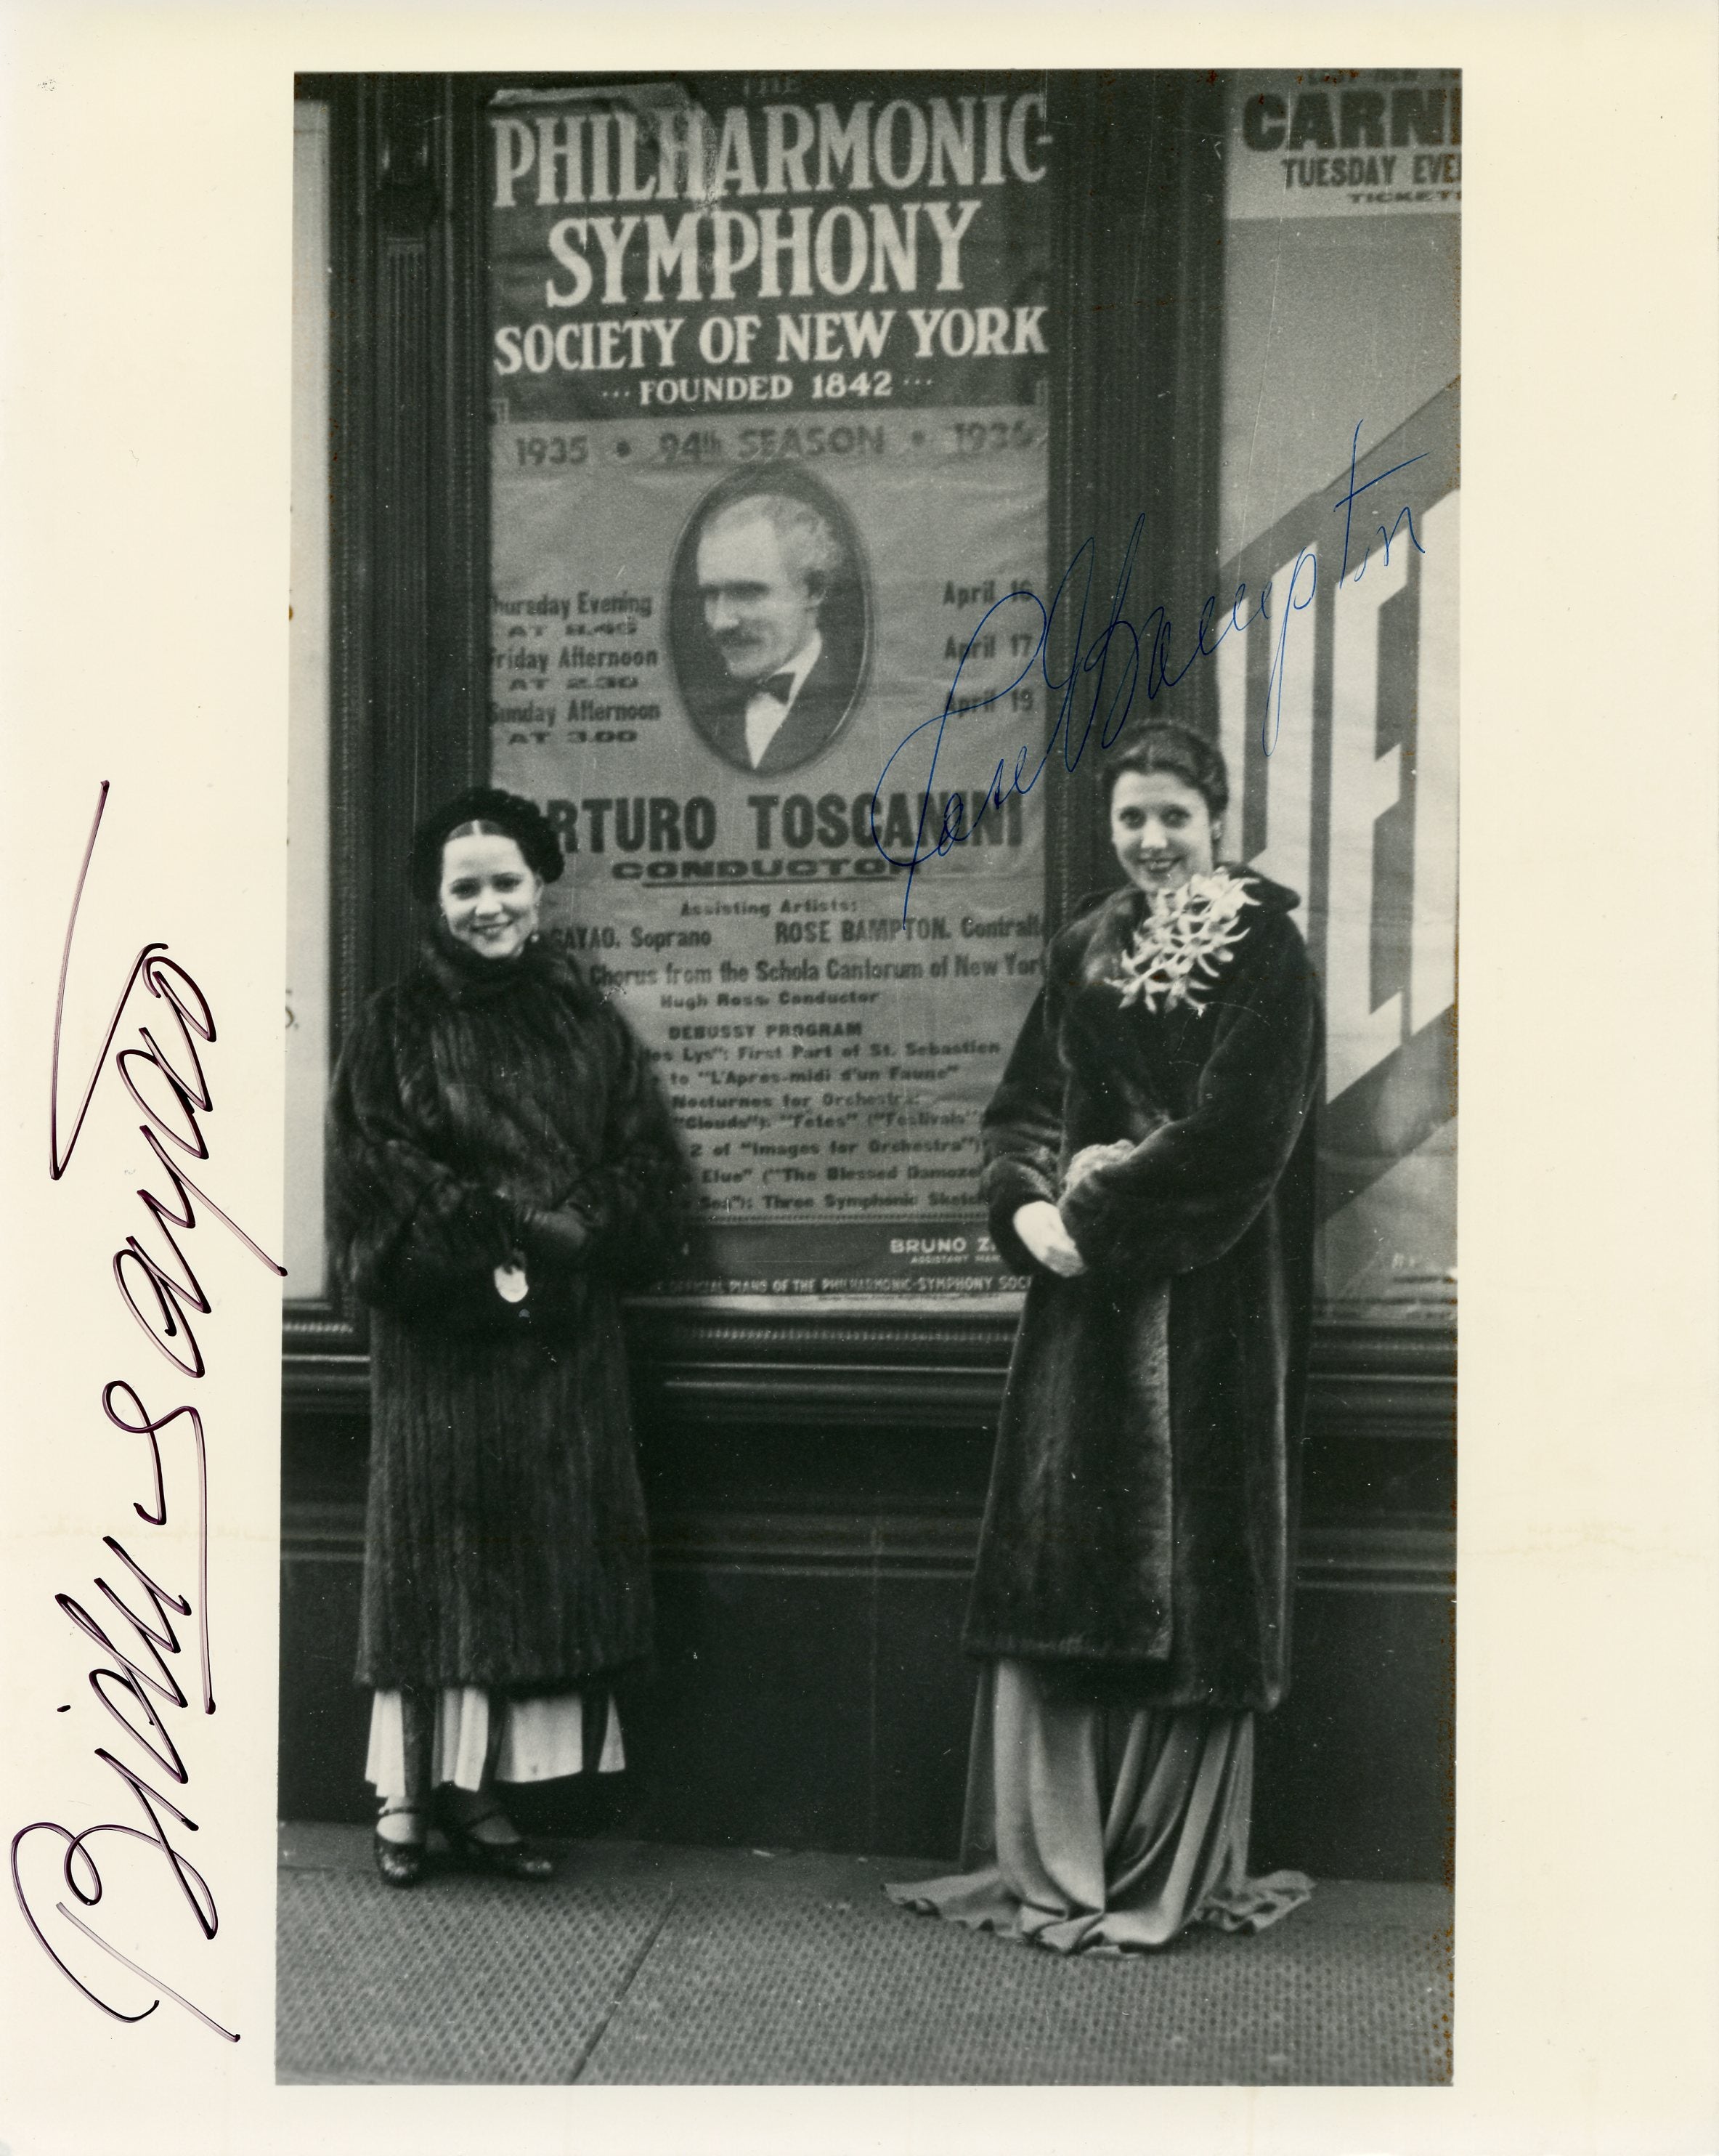 THE
PHILHARMONIC-
SYMPHONY
SOCIETY OF NEW YORK
··· FOUNDED 1842 ···
1935 • 94th SEASON • 1936
hursday Evening
AT 8.45
April 16
riday Afternoon
AT 2.30
April 17
Sunday Afternoon
AT 3.00
April 19
RTURO TOSCANINI
CONDUCTOR
Assisting Artists:
SAYAO, Soprano ROSE BAMPTON, Contralt
Chorus from the Schola Cantorum of New Yor
Hugh Ross, Conductor
DEBUSSY PROGRAM
es Lys": First Part of St. Sebastien
to "L'Apres-midi d'un Faune"
Nocturnes for Orchestra:
"Clouds"); "Fetes" ("Festivals"
2 of "Images for Orchestra")
Elue" ("The Blessed Damoze
Sea"): Three Symphonic Sketc
BRUNO Z
ASSISTANT MAN
OFFICIAL PIANO OF THE PHILHARMONIC-SYMPHONY SOCI
CARN
TUESDAY EVE
TICKET
Rose Bampton
Bidu Sayao